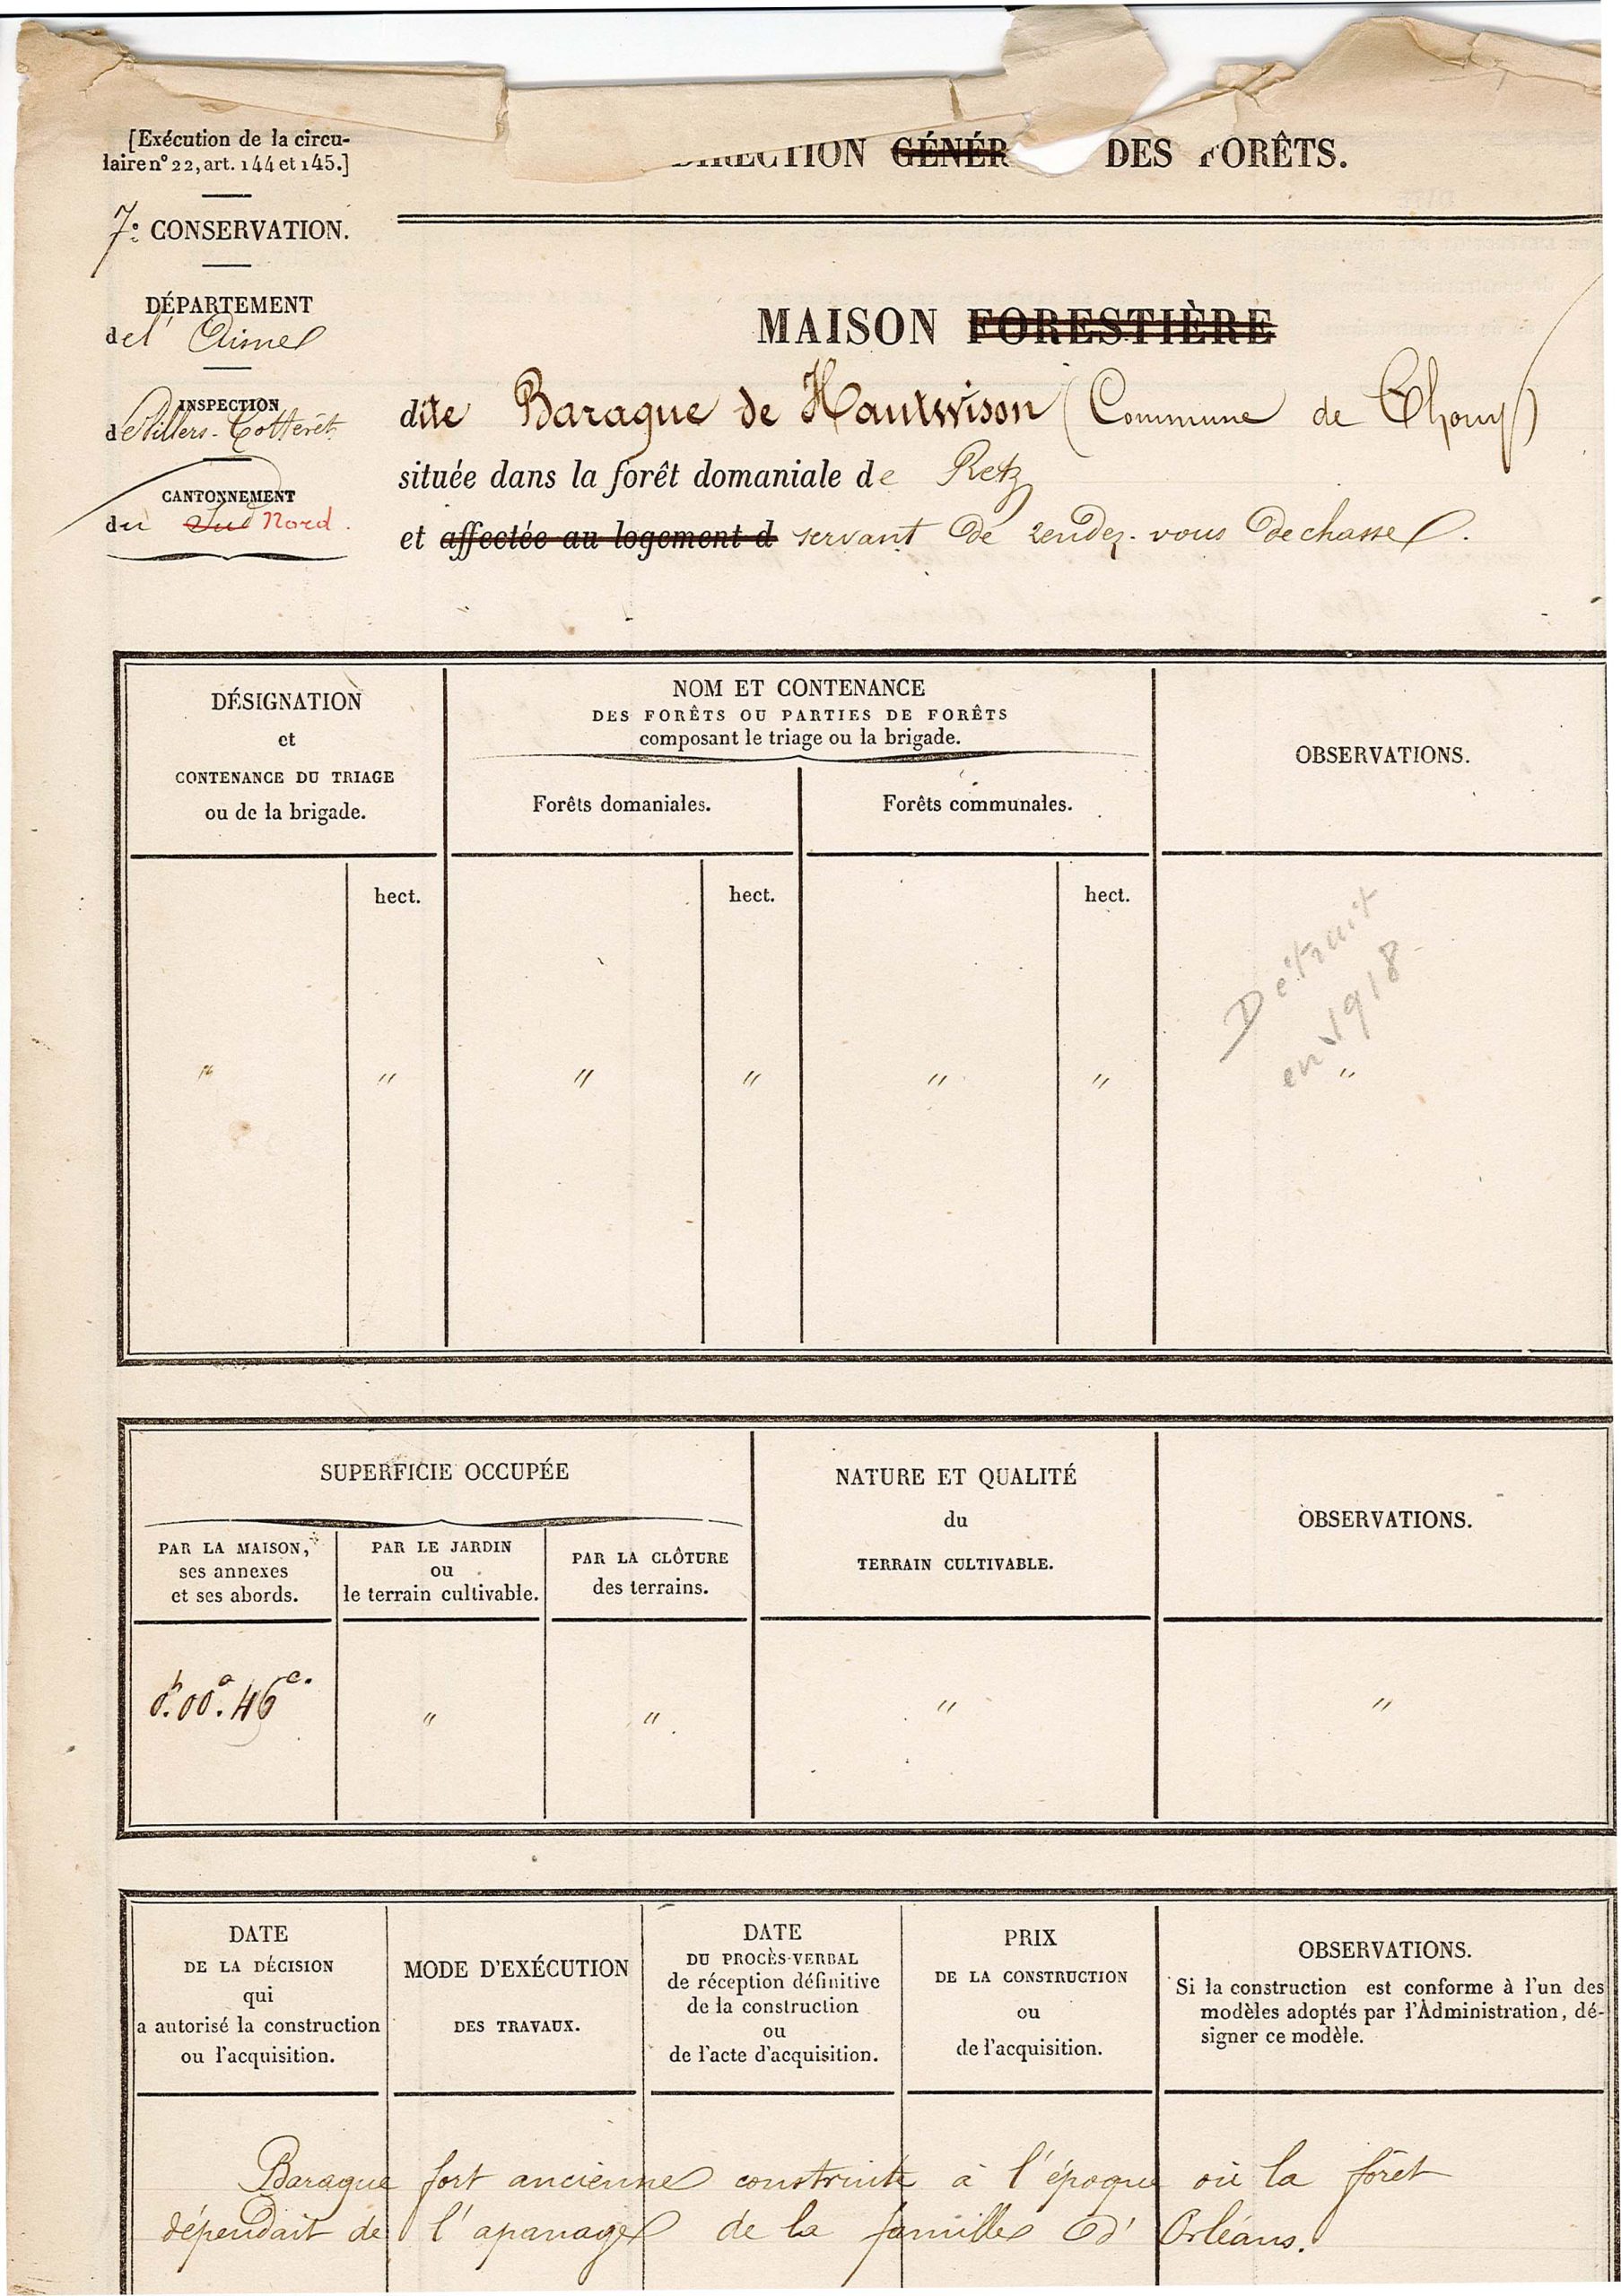 [Exécution de la circu-
laire n° 22, art. 144 et 145.]
DIRECTION GÉNÉR DES FORÊTS.
7e CONSERVATION.
DÉPARTEMENT
de l'Aisne
INSPECTION
de Villers-Cotterêts
CANTONNEMENT
du Sud Nord.
MAISON FORESTIÈRE
dite Baraque de Hautwison (Commune de Chouy)
située dans la forêt domaniale de Retz
et affectée au logement d servant de rendez-vous de chasse.
DÉSIGNATION
et
CONTENANCE DU TRIAGE
ou de la brigade.
NOM ET CONTENANCE
DES FORÊTS OU PARTIES DE FORÊTS
composant le triage ou la brigade.
Forêts domaniales.
Forêts communales.
OBSERVATIONS.
hect.
hect.
hect.
Détruit
en 1918
" " " " " " "
SUPERFICIE OCCUPÉE
PAR LA MAISON,
ses annexes
et ses abords.
PAR LE JARDIN
ou
le terrain cultivable.
PAR LA CLÔTURE
des terrains.
NATURE ET QUALITÉ
du
TERRAIN CULTIVABLE.
OBSERVATIONS.
0h.00a.46c. " " " "
DATE
DE LA DÉCISION
qui
a autorisé la construction
ou l'acquisition.
MODE D'EXÉCUTION
DES TRAVAUX.
DATE
DU PROCÈS-VERBAL
de réception définitive
de la construction
ou
de l'acte d'acquisition.
PRIX
DE LA CONSTRUCTION
ou
de l'acquisition.
OBSERVATIONS.
Si la construction est conforme à l'un des
modèles adoptés par l'Administration, dé-
signer ce modèle.
Baraque fort ancienne construite à l'époque où la forêt
dépendait de l'apanage de la famille d'Orléans.